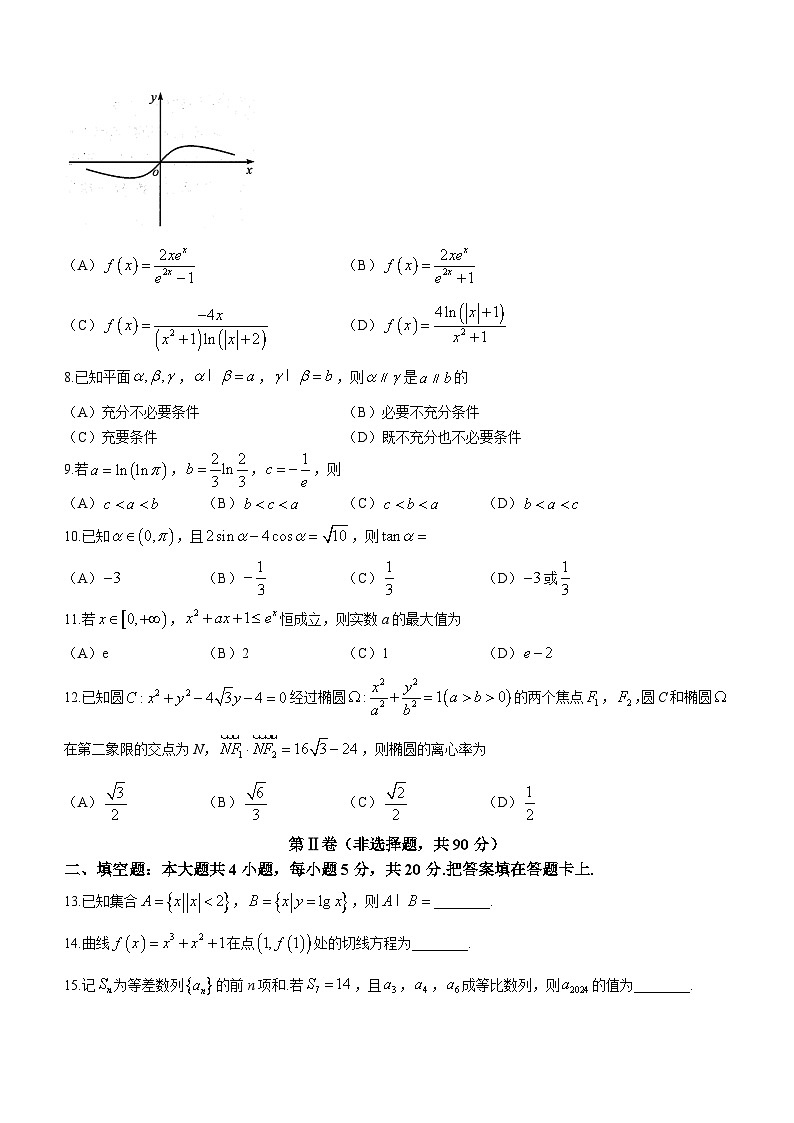 y
O
x
(A) f(x)=2xe^x/(e^{2x}−1) (B) f(x)=2xe^x/(e^{2x}+1)
(C) f(x)=−4x/((x²+1)ln(|x|+2)) (D) f(x)=4ln(|x|+1)/(x²+1)
8.已知平面α,β,γ，α| β=a，γ| β=b，则α∥γ是a∥b的
(A)充分不必要条件 (B)必要不充分条件
(C)充要条件 (D)既不充分也不必要条件
9.若a=ln(lnπ)，b=2/3 ln 2/3，c=−1/e，则
(A) c<a<b (B) b<c<a (C) c<b<a (D) b<a<c
10.已知α∈(0,π)，且2sinα−4cosα=√10，则tanα=
(A) −3 (B) −1/3 (C) 1/3 (D) −3或1/3
11.若x∈[0,+∞)，x²+ax+1≤e^x恒成立，则实数a的最大值为
(A) e (B) 2 (C) 1 (D) e−2
12.已知圆C:x²+y²−4√3y−4=0经过椭圆Ω:x²/a²+y²/b²=1(a>b>0)的两个焦点F₁，F₂,圆C和椭圆Ω
在第二象限的交点为N，NF₁·NF₂=16√3−24，则椭圆的离心率为
(A) √3/2 (B) √6/3 (C) √2/2 (D) 1/2
第Ⅱ卷（非选择题，共90分）
二、填空题：本大题共4小题，每小题5分，共20分.把答案填在答题卡上.
13.已知集合A={x||x|<2}，B={x|y=lg x}，则A| B=________.
14.曲线f(x)=x³+x²+1在点(1,f(1))处的切线方程为________.
15.记Sₙ为等差数列{aₙ}的前n项和.若S₇=14，且a₃，a₄，a₆成等比数列，则a₂₀₂₄的值为________.